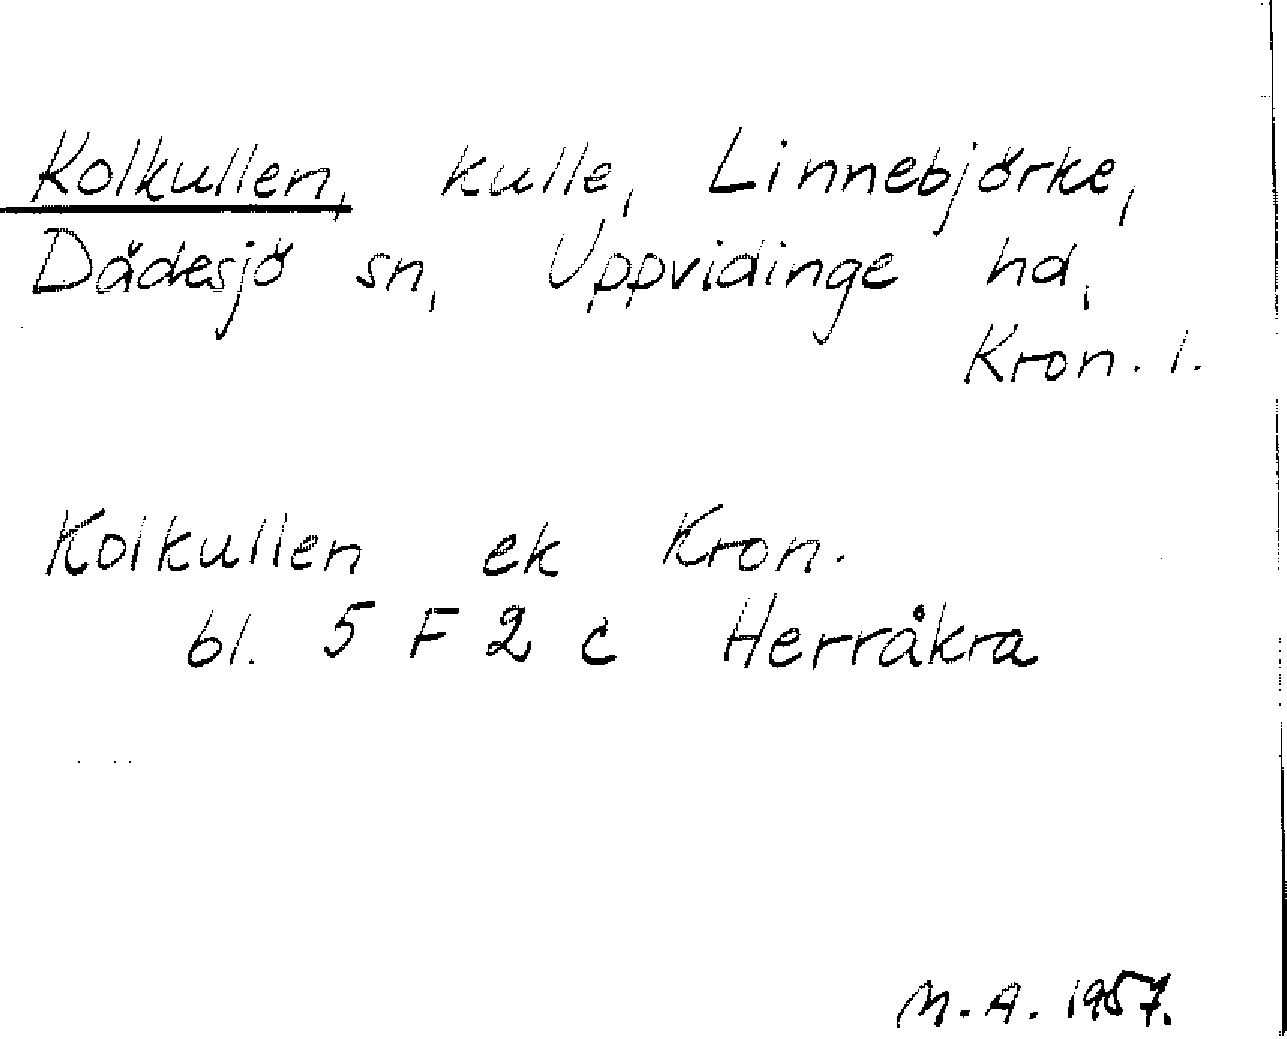 Kolkullen, kulle, Linnebjörke,
Dädesjö sn, Uppvidinge hd,
Kron. l.
Kolkullen ek Kron.
bl. 5 F 2 c Herråkra
M. A. 1957.